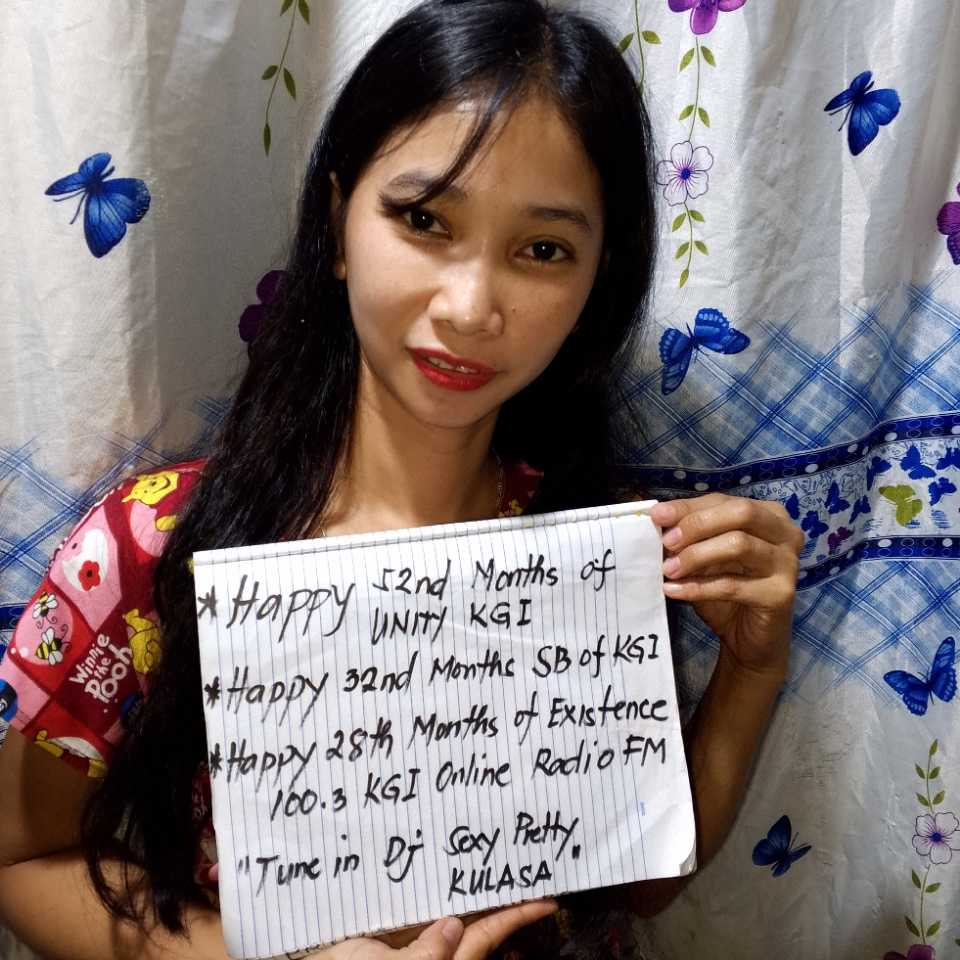 Winnie
the
Pooh
* Happy 52nd Months of
UNITY KGI
* Happy 32nd Months SB of KGI
* Happy 28th Months of Existence
100.3 KGI Online Radio FM
"Tune in Dj Sexy Pretty
KULASA"